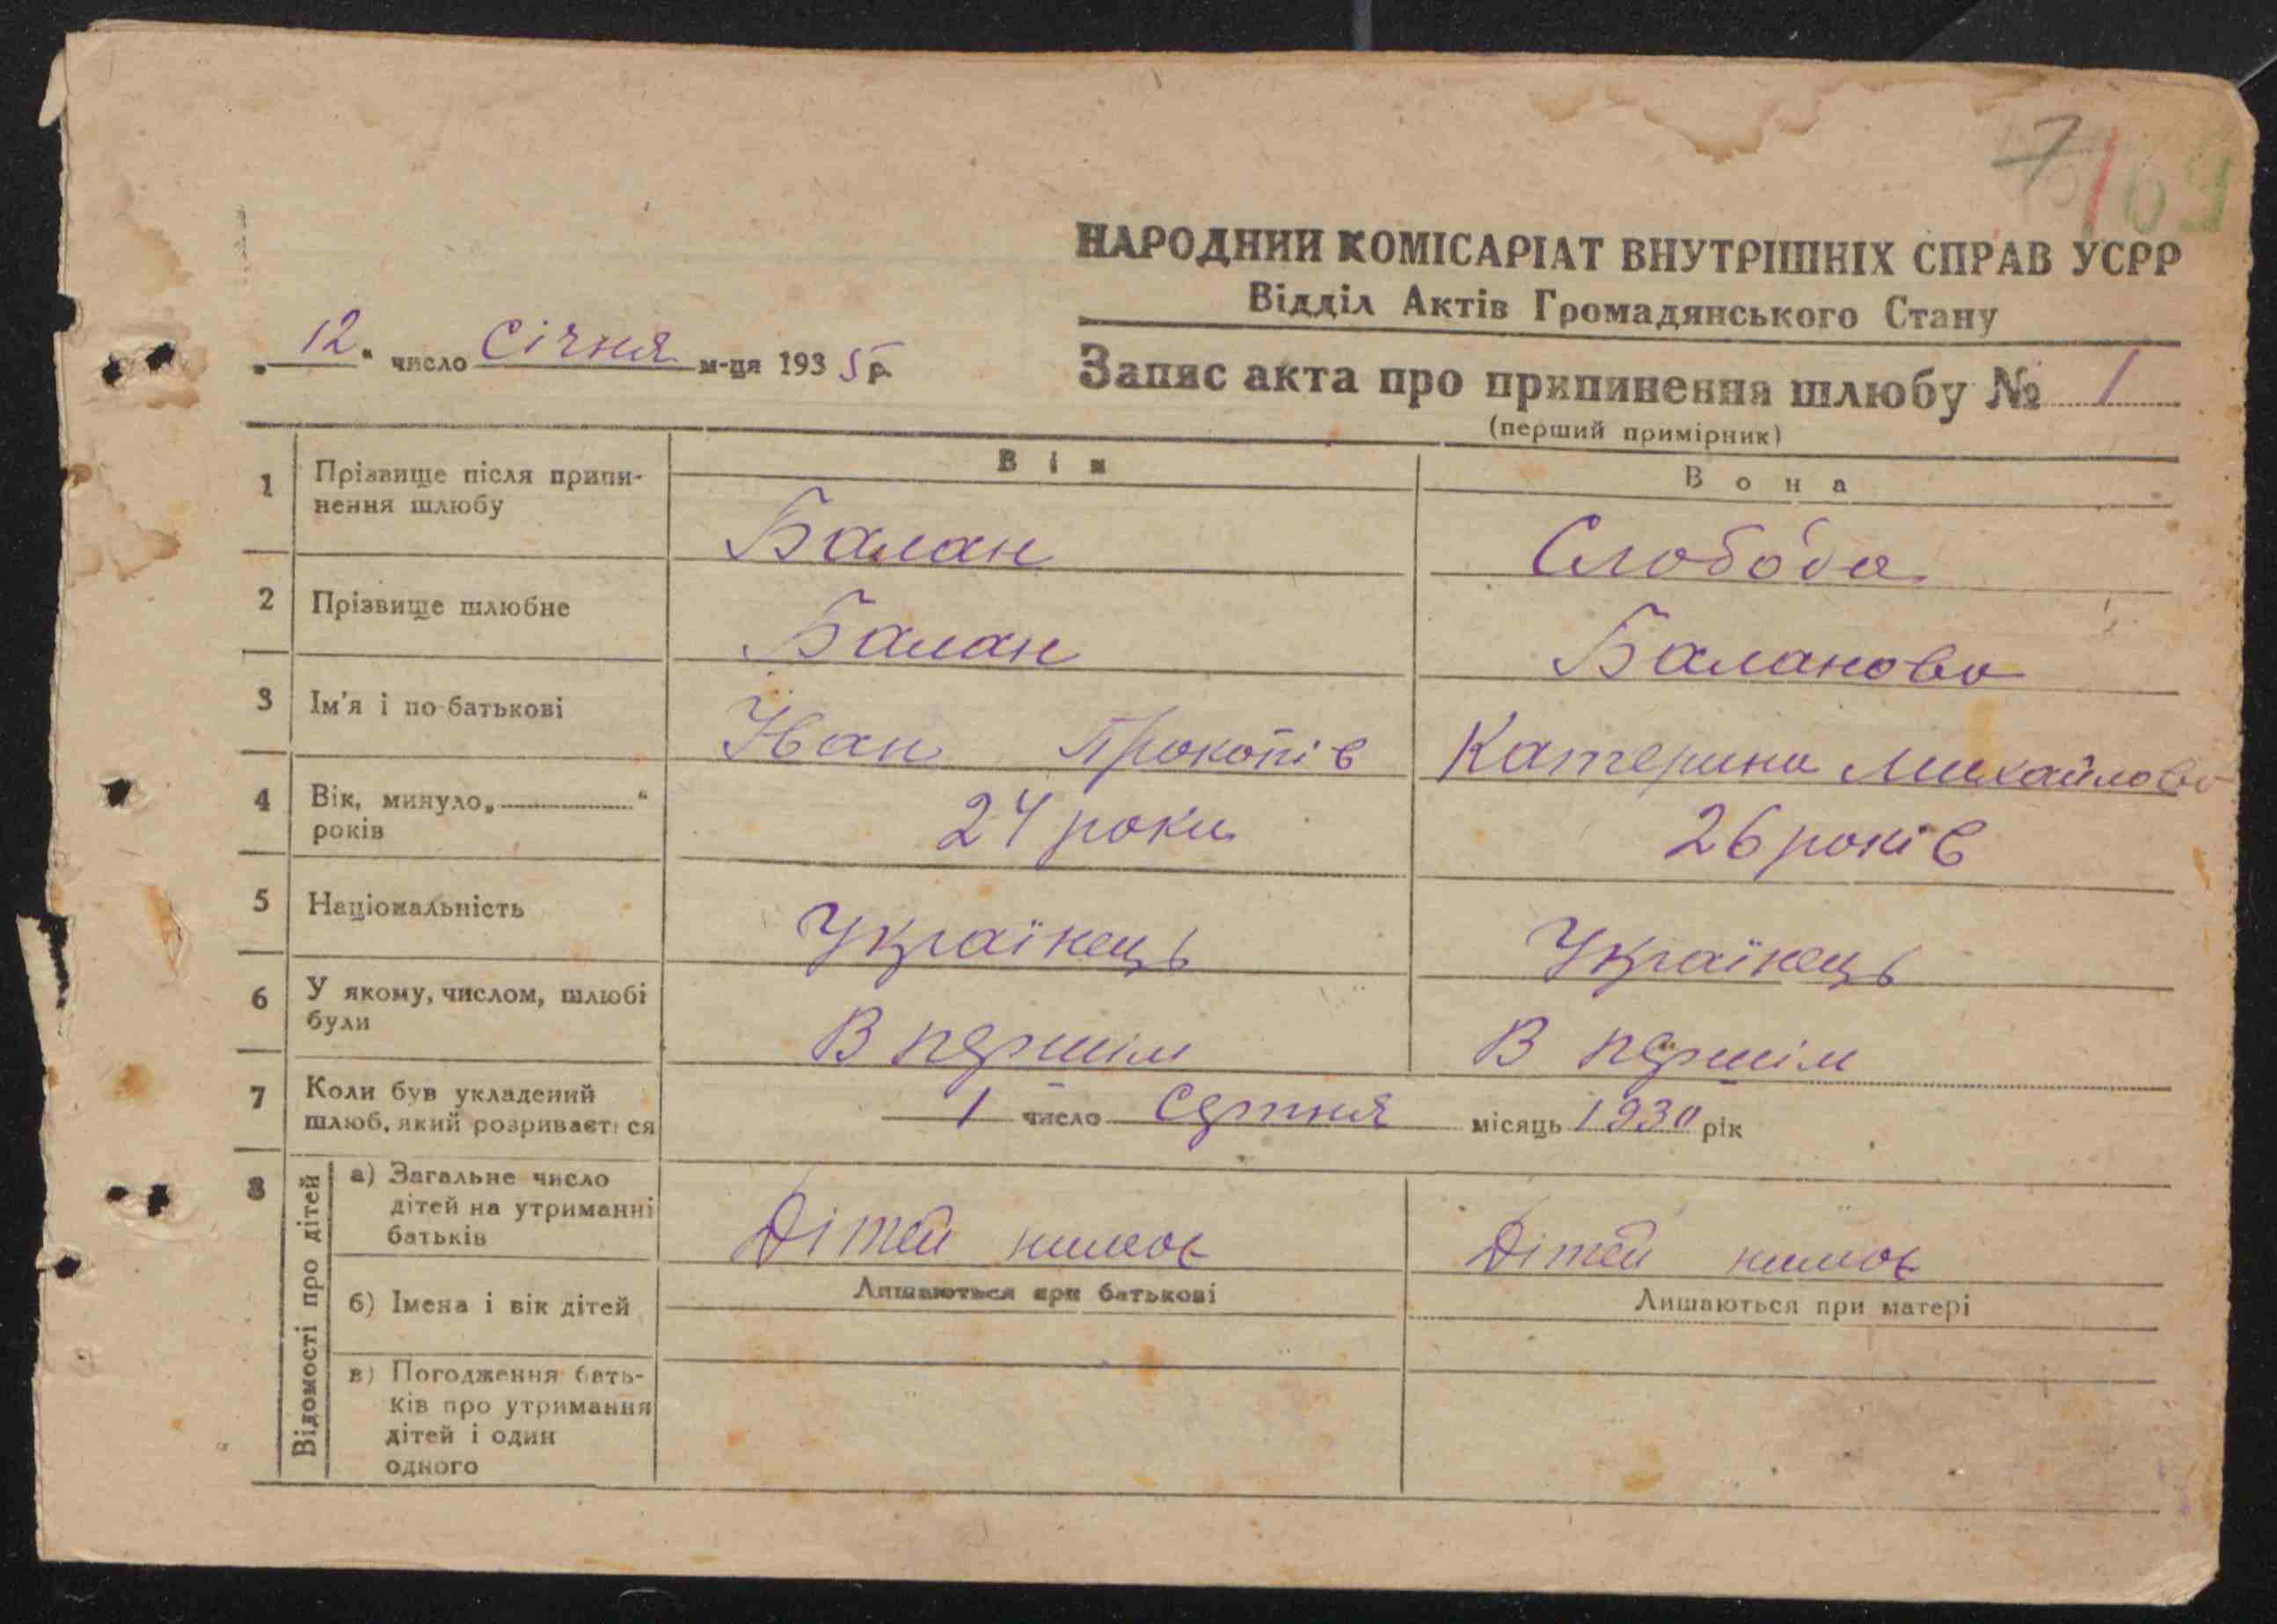 7
69
НАРОДНИЙ КОМІСАРІАТ ВНУТРІШНІХ СПРАВ УСРР
Відділ Актів Громадянського Стану
„12“ число Січня м-ця 1935 р.
Запис акта про припинення шлюбу № 1
(перший примірник)
Він
Вона
1 Прізвище після припи-
нення шлюбу
Балан
Слобода
2 Прізвище шлюбне
Балан
Баланова
3 Ім'я і по-батькові
Іван Прокопів
Катерина Михайлова
4 Вік, минуло „ “
років
24 роки
26 років
5 Національність
Українець
Українець
6 У якому, числом, шлюбі
були
В першім
В першім
7 Коли був укладений
шлюб, який розривається
1 число Серпня місяць 1930 рік
8 Відомості про дітей
а) Загальне число
дітей на утриманні
батьків
Дітей нимає
Дітей нимає
б) Імена і вік дітей
Лишаються при батькові
Лишаються при матері
в) Погодження бать-
ків про утримання
дітей і один
одного